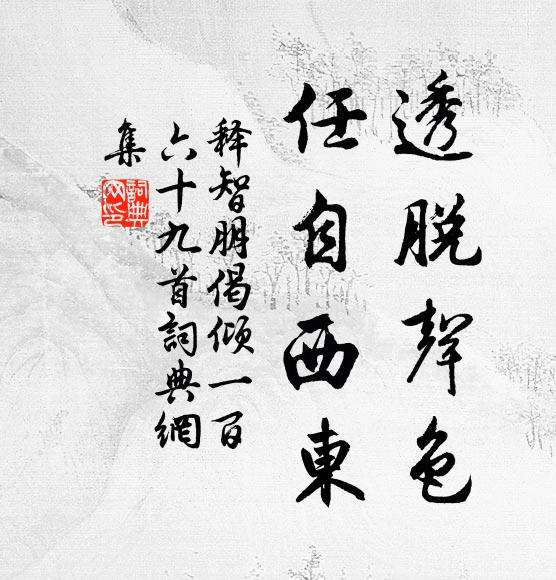 透脱聲色
任自西東
释智朋偈倾一百
六十九首詞典網
集
詞典網印